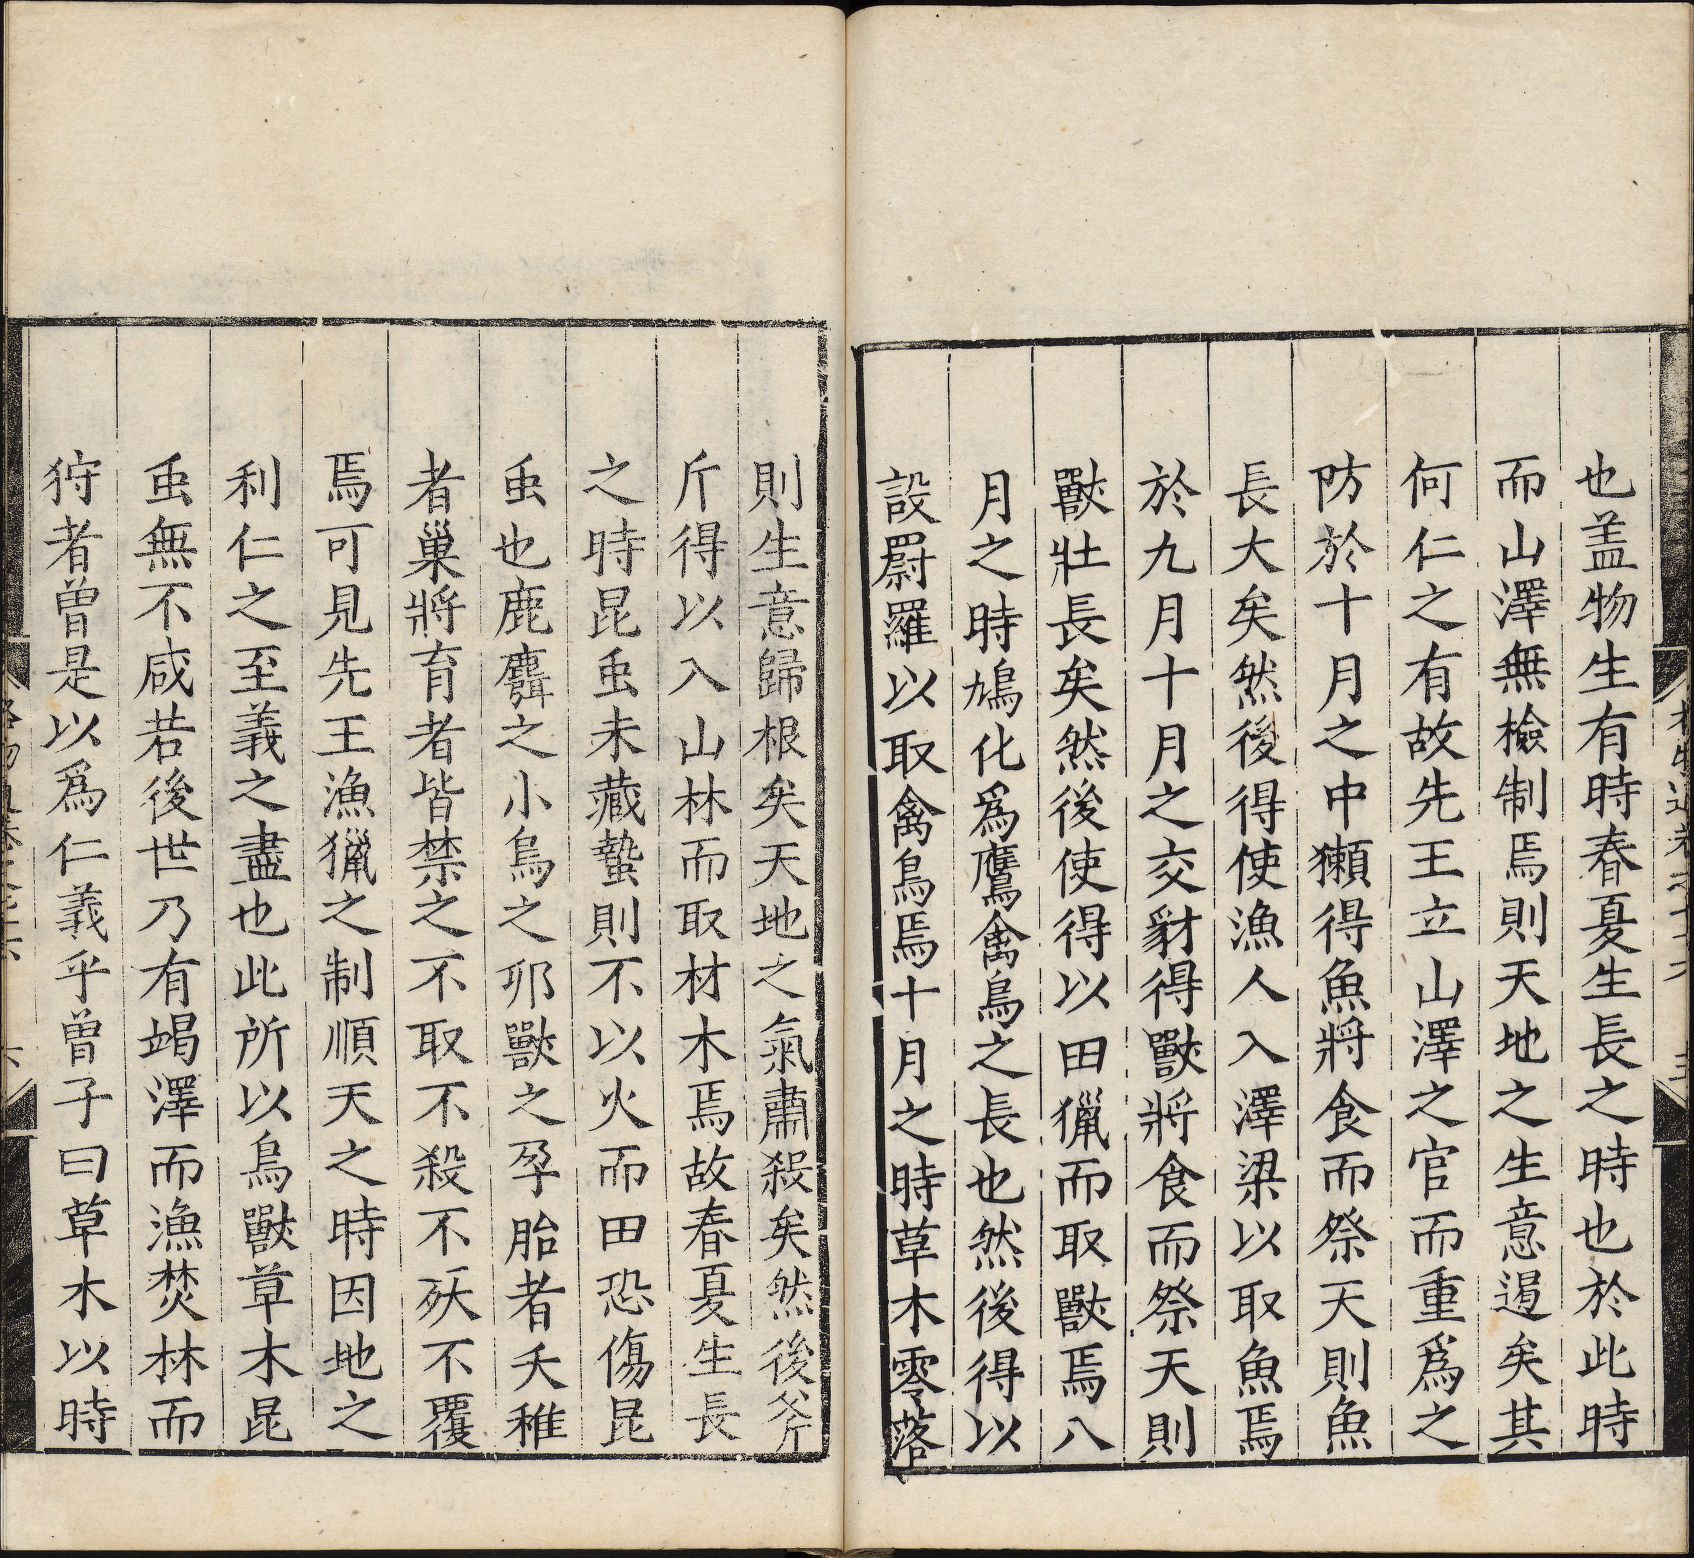 也盖物生有時春夏生長之時也於此時
而山澤無檢制焉則天地之生意遏矣其
何仁之有故先王立山澤之官而重爲之
防於十月之中獺得魚將食而祭天則魚
長大矣然後得使漁人入澤梁以取魚焉
於九月十月之交豺得獸將食而祭天則
獸壯長矣然後使得以田獵而取獸焉八
月之時鳩化爲鷹禽鳥之長也然後得以
設罻羅以取禽鳥焉十月之時草木零落
則生意歸根矣天地之氣肅殺矣然後斧
斤得以入山林而取材木焉故春夏生長
之時昆虫未藏蟄則不以火而田恐傷昆
虫也鹿麛之小鳥之卵獸之孕胎者夭稚
者巢將育者皆禁之不取不殺不殀不覆
焉可見先王漁獵之制順天之時因地之
利仁之至義之盡也此所以鳥獸草木昆
虫無不咸若後世乃有竭澤而漁焚林而
狩者曾是以爲仁義乎曾子曰草木以時